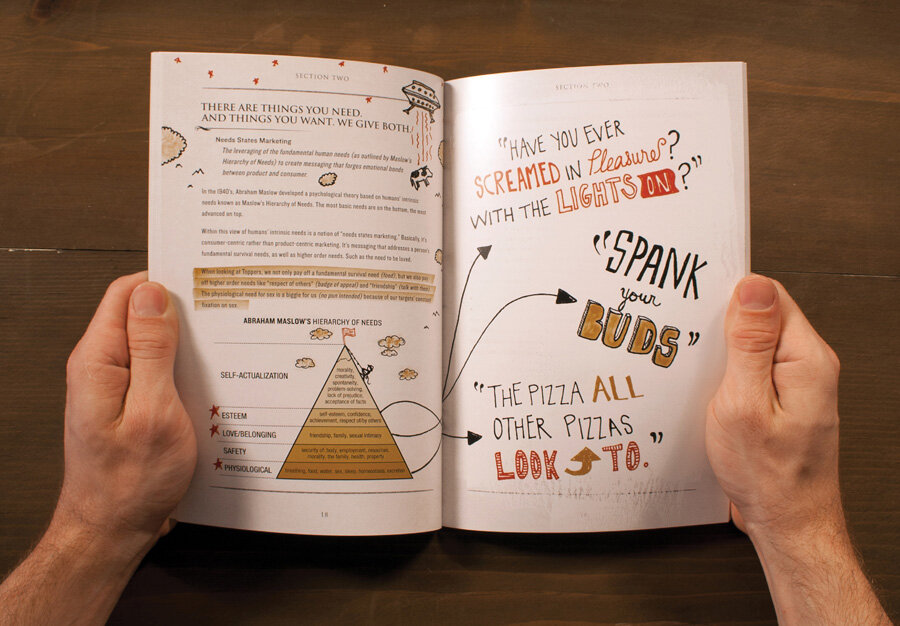 SECTION TWO
THERE ARE THINGS YOU NEED,
AND THINGS YOU WANT. WE GIVE BOTH.
Needs States Marketing
The leveraging of the fundamental human needs (as outlined by Maslow's
Hierarchy of Needs) to create messaging that forges emotional bonds
between product and consumer.
In the 1940's, Abraham Maslow developed a psychological theory based on humans' intrinsic
needs known as Maslow's Hierarchy of Needs. The most basic needs are on the bottom, the most
advanced on top.
Within this view of humans' intrinsic needs is a notion of "needs states marketing." Basically, it's
consumer-centric rather than product-centric marketing. It's messaging that addresses a person's
fundamental survival needs, as well as higher order needs. Such as the need to be loved.
When looking at Toppers, we not only pay off a fundamental survival need (food), but we also pay
off higher order needs like "respect of others" (badge of appeal) and "friendship" (talk with them).
The physiological need for sex is a biggie for us (no pun intended) because of our targets' constant
fixation on sex.
ABRAHAM MASLOW'S HIERARCHY OF NEEDS
SELF-ACTUALIZATION
morality,
creativity,
spontaneity,
problem-solving,
lack of prejudice,
acceptance of facts
ESTEEM
self-esteem, confidence,
achievement, respect of/by others
LOVE/BELONGING
friendship, family, sexual intimacy
SAFETY
security of: body, employment, resources,
morality, the family, health, property
PHYSIOLOGICAL
breathing, food, water, sex, sleep, homeostasis, excretion
18
SECTION TWO
"HAVE YOU EVER
SCREAMED IN Pleasure?
WITH THE LIGHTS ON?"
"SPANK
your
BUDS"
"THE PIZZA ALL
OTHER PIZZAS
LOOK TO."